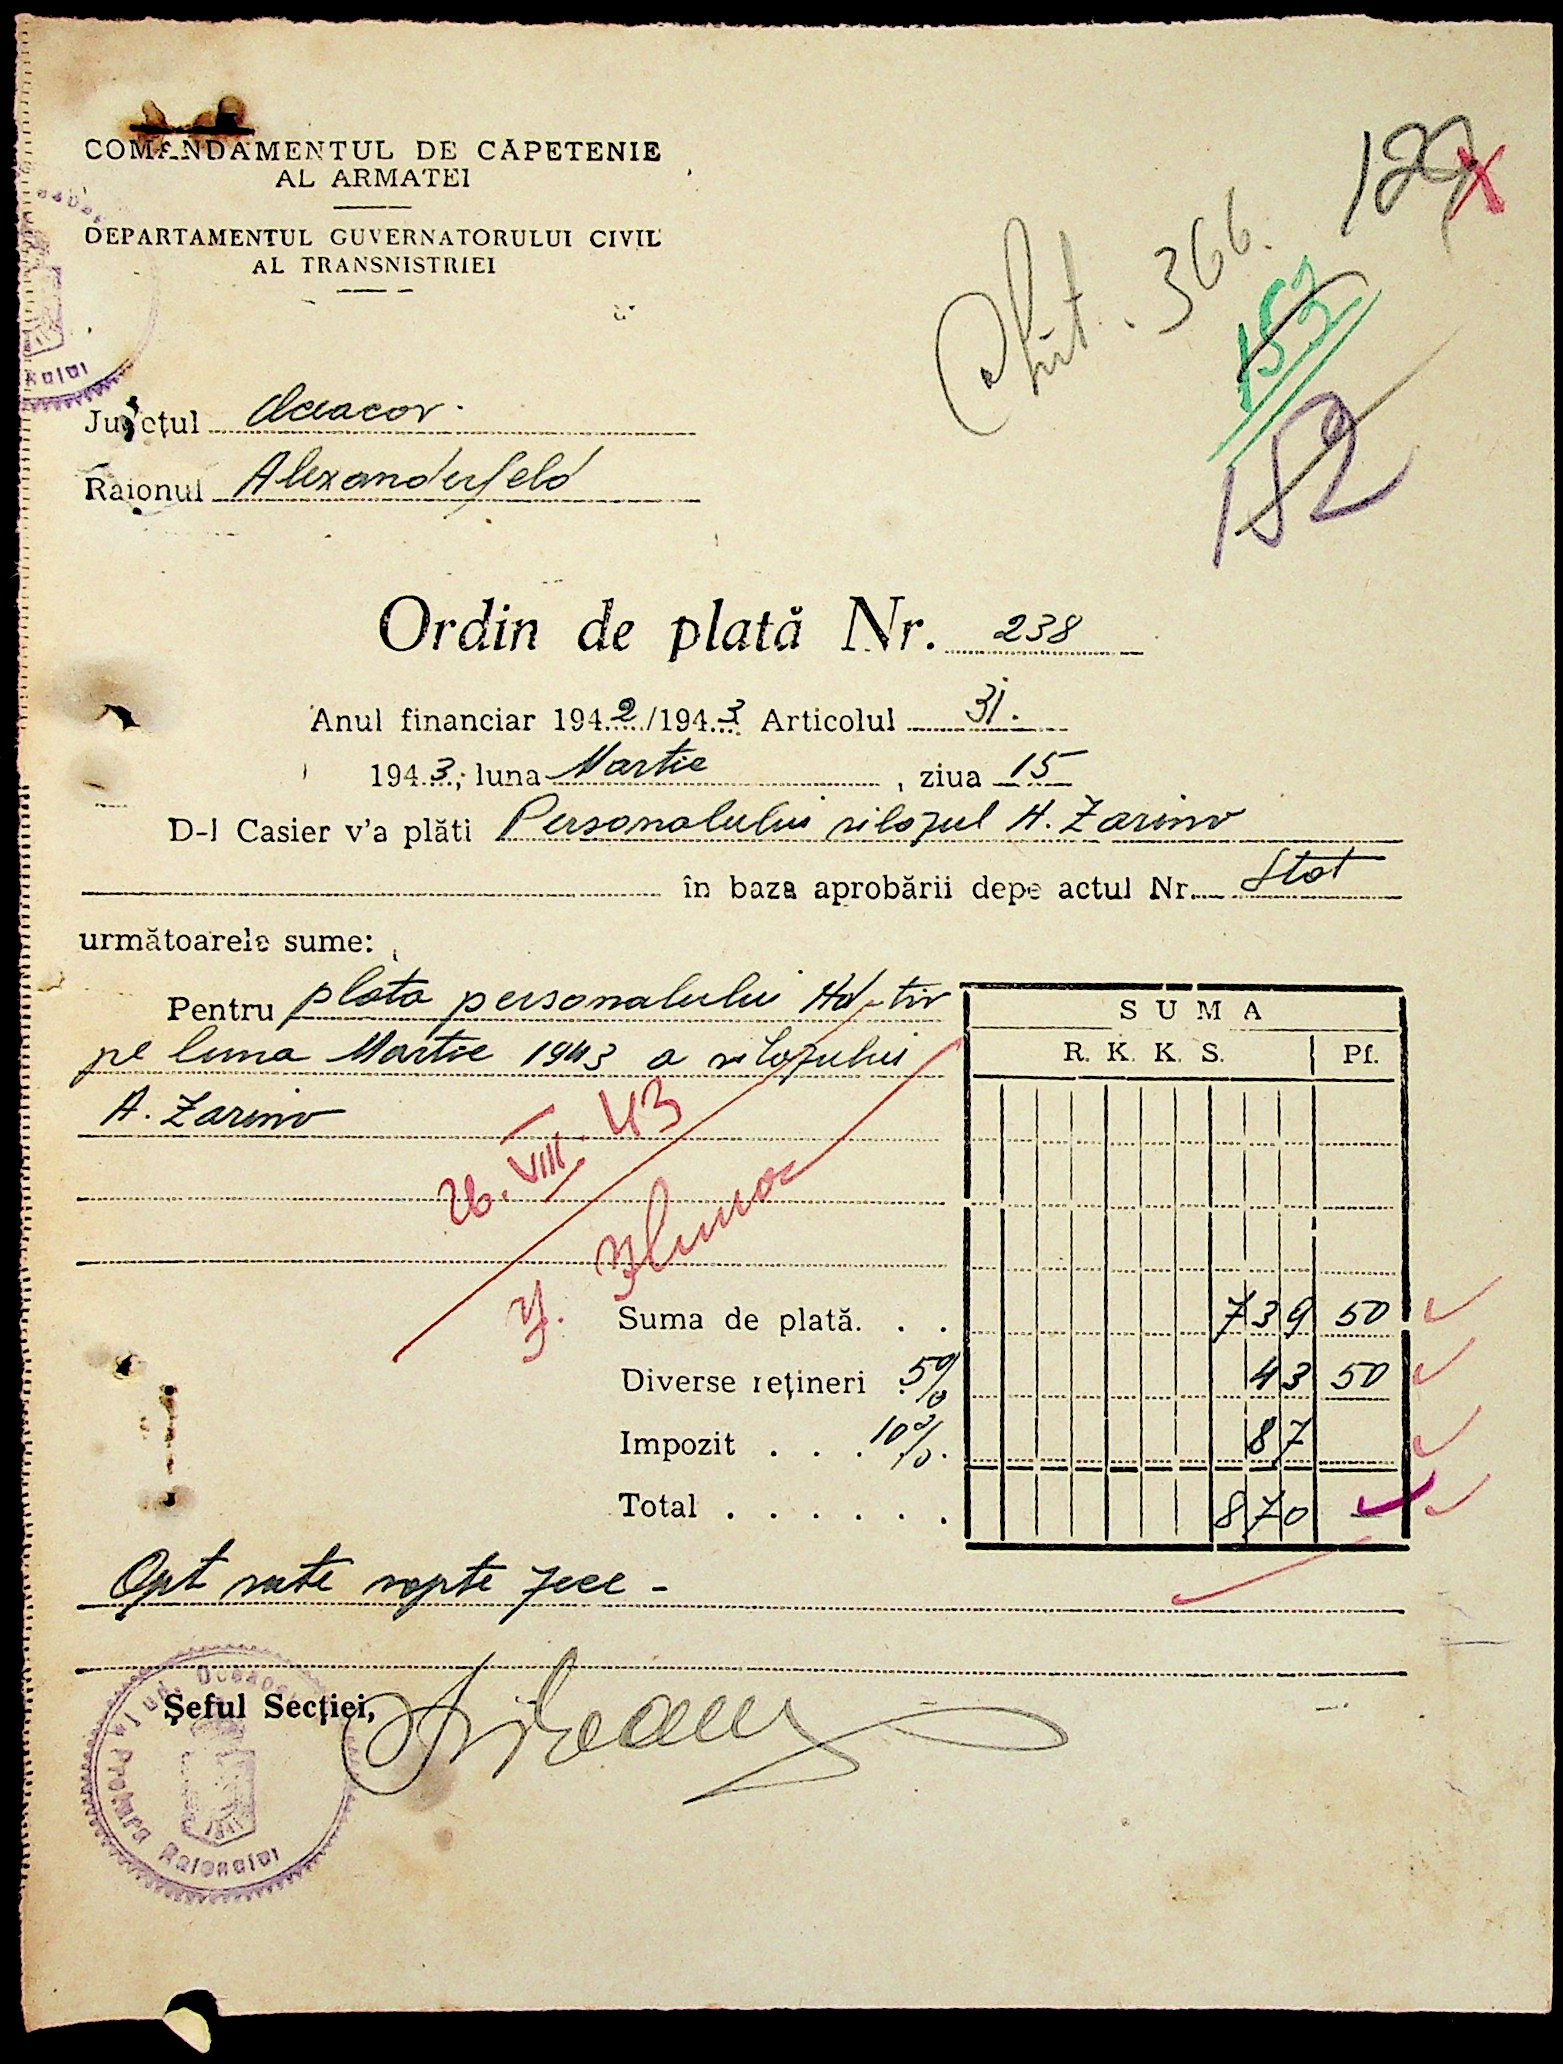 COMANDAMENTUL DE CAPETENIE
AL ARMATEI
DEPARTAMENTUL GUVERNATORULUI CIVIL
AL TRANSNISTRIEI
127
Chit. 366.
153
152
Județul Oceacov.
Raionul Alexanderfeld
Ordin de plată Nr. 238
Anul financiar 1942/1943 Articolul 31.
1943, luna Martie, ziua 15
D-l Casier v'a plăti Personalului silozul A. Zarino
în baza aprobării depe actul Nr. Stat
următoarele sume:
Pentru plata personalului Ad-tiv
pe luna Martie 1943 a silozului
A. Zarino
S U M A
R. K. K. S. Pf.
26.VIII.43
Suma de plată. . . 739 50
Diverse rețineri 5% 43 50
Impozit . . . 10% 87
Total . . . . . . 870 —
Opt sute șapte zece -
Șeful Secției,
Jud. Oceacov
Pretura Raionului
1941